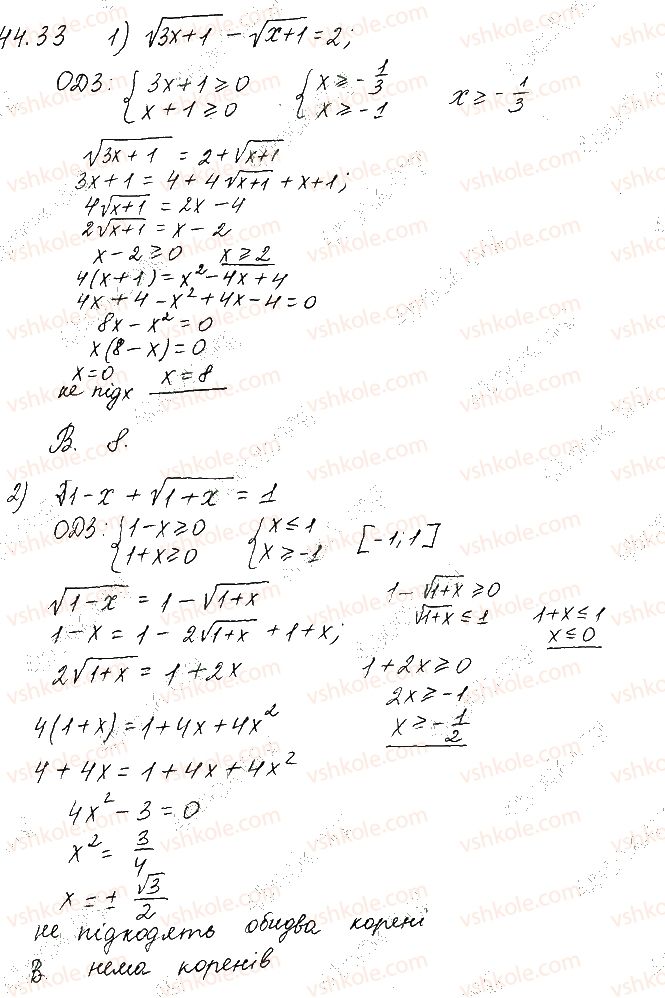 44.33 1) √(3x+1) - √(x+1) = 2;
ОДЗ: { 3x+1 ≥ 0 { x ≥ -1/3 x ≥ -1/3
x+1 ≥ 0 x ≥ -1
√(3x+1) = 2+√(x+1)
3x+1 = 4+4√(x+1) + x+1;
4√(x+1) = 2x-4
2√(x+1) = x-2
x-2 ≥ 0 x ≥ 2
4(x+1) = x²-4x+4
4x+4-x²+4x-4=0
8x-x²=0
x(8-x)=0
x=0 x=8
не підх
В. 8.
2) √1-x + √(1+x) = 1
ОДЗ: { 1-x ≥ 0 { x ≤ 1 [-1;1]
1+x ≥ 0 x ≥ -1
√(1-x) = 1-√(1+x) 1-√(1+x) ≥ 0
1-x = 1-2√(1+x) + 1+x; √(1+x) ≤ 1 1+x ≤ 1
x ≤ 0
2√(1+x) = 1+2x 1+2x ≥ 0
2x ≥ -1
4(1+x) = 1+4x+4x² x ≥ -1/2
4+4x = 1+4x+4x²
4x²-3=0
x² = 3/4
x = ± √3/2
не підходять обидва корені
В нема коренів
vshkole.com